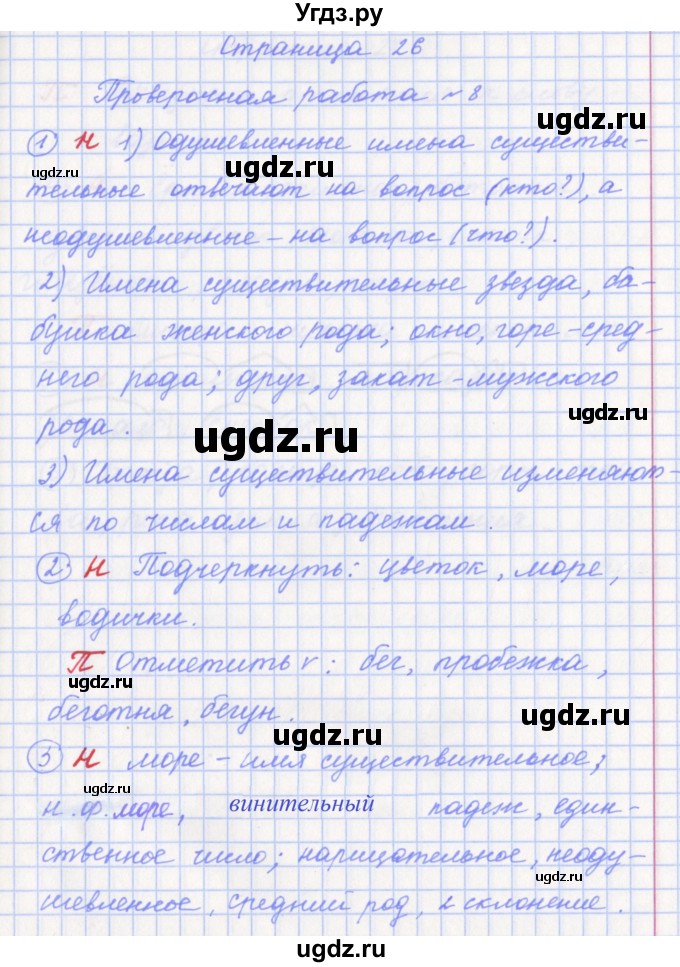 Угдз.ру
Страница 26
Проверочная работа №8
1 Н 1) Одушевленные имена существи-
тельные отвечают на вопрос (кто?), а
неодушевленные – на вопрос (что?).
2) Имена существительные звезда, ба-
бушка женского рода; окно, горе – сред-
него рода; друг, закат – мужского
рода.
3) Имена существительные изменяют-
ся по числам и падежам.
2 Н Подчеркнуть: цветок, море,
водички.
П Отметить v: бег, пробежка,
беготня, бегун.
3 Н море – имя существительное;
н.ф. море, винительный падеж, един-
ственное число; нарицательное, неоду-
шевленное, средний род, 2 склонение.
ugdz.ru
ugdz.ru
ugdz.ru
ugdz.ru
ugdz.ru
ugdz.ru
ugdz.ru
ugdz.ru
ugdz.ru
ugdz.ru
ugdz.ru
ugdz.ru
ugdz.ru